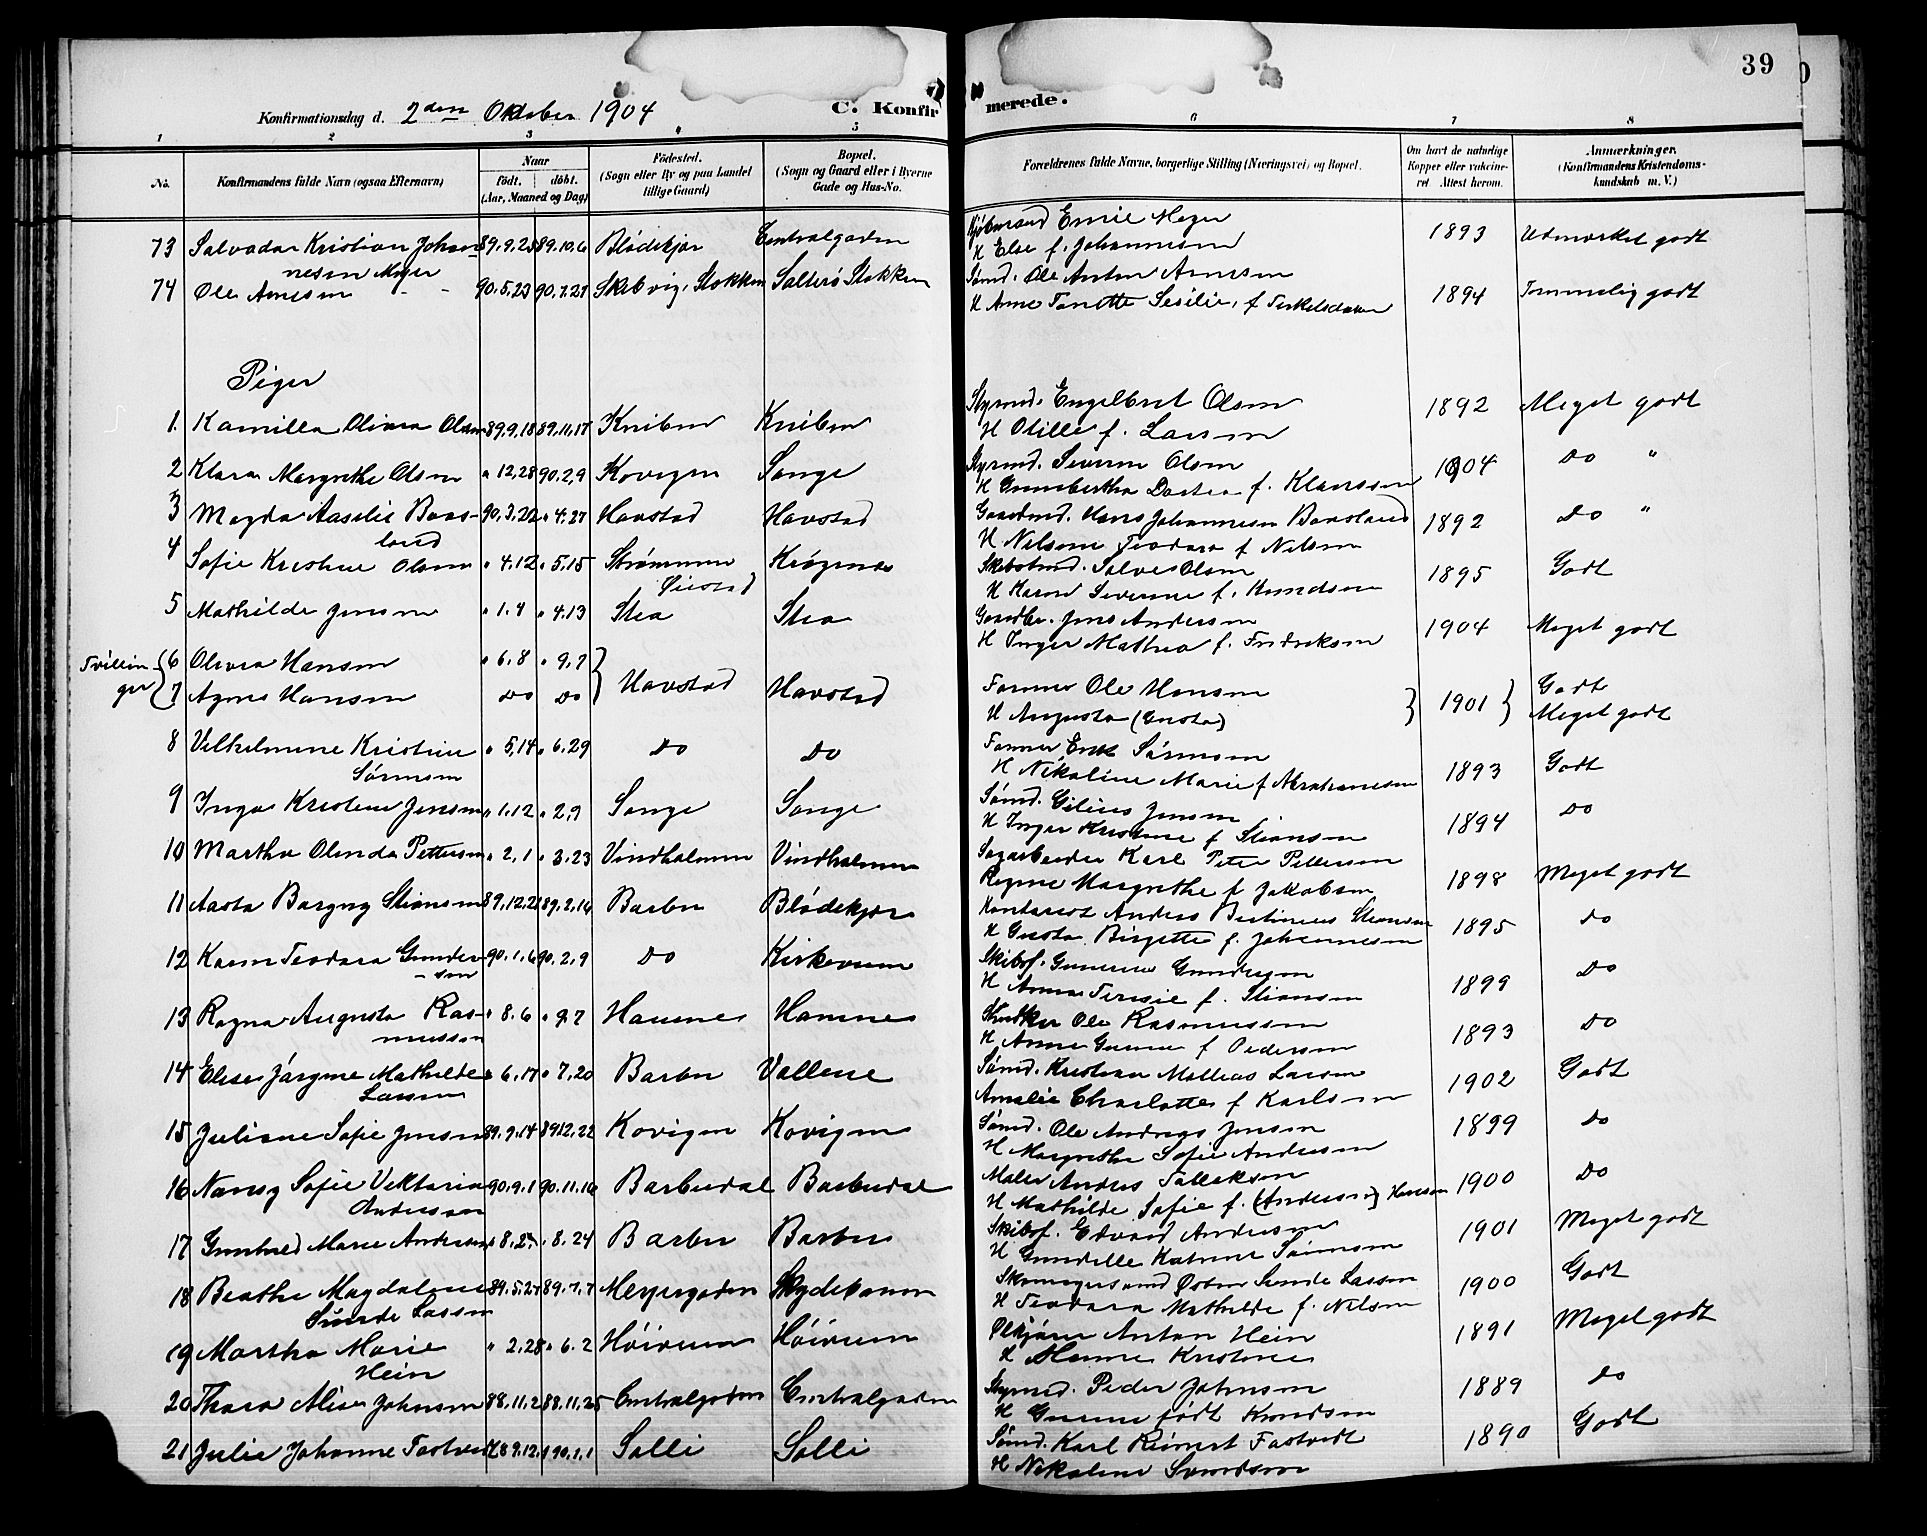 39
Konfirmationsdag d. 2den Oktober 1904
C. Konfirmerede.
1 2 3 4 5 6 7 8
No. Konfirmandens fulde Navn (ogsaa Efternavn) Naar født. døbt. (Aar, Maaned og Dag) Fødested. (Sogn eller By og paa Landet tillige Gaard) Bopæl. (Sogn og Gaard eller i Byerne Gade og Hus-No. Forældrenes fulde Navne, borgerlige Stilling (Næringsvei) og Bopæl. Om havt de naturlige Kopper eller vaccineret Attest herom. Anmærkninger. (Konfirmandens Kristendomskundskab m. V.)
73 Salvador Kristian Johannesen Meyer 89.9.25 89.10.6 Blødekjær Centralgaden Kjøbmand Emil Meyer 1893 Udmærket godt
H Else f. Johannesen
74 Ole Arnesen 90.5.23 90.7.27 Skibvig, Stokken Salterø Stokken Sømd. Ole Anton Arnesen 1894 Temmelig godt
H Anne Tonette Sesilie, f Terkelsdatter
Piger
1. Kamilla Olivia Olsen 89.9.18 89.11.17 Kniben Kniben Styrmd. Engelbret Olsen 1892 Meget godt
H Otilie f. Larsen
2 Klara Margrethe Olsen " 12,28 90.2,9 Kovigen Songe Styrmd. Severin Olsen 1904 do "
H Gunnbertha Dortea f. Klausen
3 Magda Aaselie Baasland 90.3.22 " 4.27 Havstad Havstad Gaardmd. Hans Johannesen Baasland 1892 do "
H Nilsine Teodora f Nilsen
4 Sofie Kristine Olsen " 4.12 " 5.15 Strømmen Øiestad Krøgenes Skibstmd. Salve Olsen 1895 Godt
H Karen Severine f. Knudsen
5 Mathilde Jensen " 1.4 " 4.13 Stea Stea Gaardbr. Jens Andersen 1904 Meget godt
H Inger Mathea f. Fredriksen
Tvillinger
6 Olivia Hansen " 6.8 " 9.7 Havstad Havstad Farmer Ole Hansen 1901 Godt
7 Agnes Hansen do do H Augusta (Gusta) Meget godt
8 Vilhelmine Kristine Sørensen " 5,14 " 6.29 do do Farmer Erik Sørensen 1893 Godt
H Nikoline Marie f Abrahamsen
9 Inga Kristine Jensen " 1.12 " 2,9 Songe Songe Sømd. Gilius Jensen 1894 do
H Inger Kristine f Stiansen
10 Martha Olinda Pettersen " 2,1 " 3.23 Vindholmen Vindholmen Sagarbeider Karl Peter Pettersen 1898 Meget godt
Regine Margrethe f Jakobsen
11 Aasta Borgny Stiansen 89.12.2 89.2,16 Barbu Blødekjær Kontorist Anders Bertinius Stiansen 1895 do
H Gusta Birgitte f. Johannesen
12 Karen Teodora Gundersen 90.1.6 90.2.9 do Kirkeveien Skibsf. Gunerius Gundersen 1899 do
H Anna Teresie f. Stiansen
13 Ragna Augusta Rasmussen " 8.6 " 9.7 Havnnes Havnnes Ole Rasmussen 1893 do
H Anne Gurine f Pedersen
14 Elise Jørgine Mathilde Larsen " 6.17 " 7,20 Barbu Vollene Sømd. Kristian Mathias Larsen 1902 Godt
Amalie Charlotte f Karlsen
15 Juliane Sofie Jensen 89.9.14 89.12.22 Kovigen Kovigen Sømd. Ole Andreas Jensen 1899 do
H Margrethe Sofie Andersen
16 Nancy Sofie Viktoria Andersen 90.9.1 90.11.16 Barbudal Barbudal Maler Anders Tallaksen 1900 do
H Mathilde Sofie f. (Andersen) Hansen
17 Gunhild Marie Andersen " 8.24 Barbu Barbu Skibsf. Edvard Andersen 1901 Meget godt
H Gundelle Katrine Sørensen
18 Beathe Magdalene Sunde Larsen 89.5.27 89.7.7 Meyergaden Skydebanen Skomagersvend Østen Sunde Larsen 1900 Godt
H Teodora Mathilde f. Nilsen
19 Martha Marie Hein " 2,28 " 6.2 Høiveien Høiveien Anton Hein 1891 Meget godt
H Hanna Kristine
20 Thora Alise Johnsen 88.11.2 88.11.25 Centralgaden Centralgaden Styrmd. Peder Johnsen 1889 do
H Gurine født Knudsen
21 Julie Johanne Fastvedt 89.12.1 90.1.1 Solli Solli Sømd. Karl Reinert Fastvedt 1890 Godt
H Nikoline Svendsen